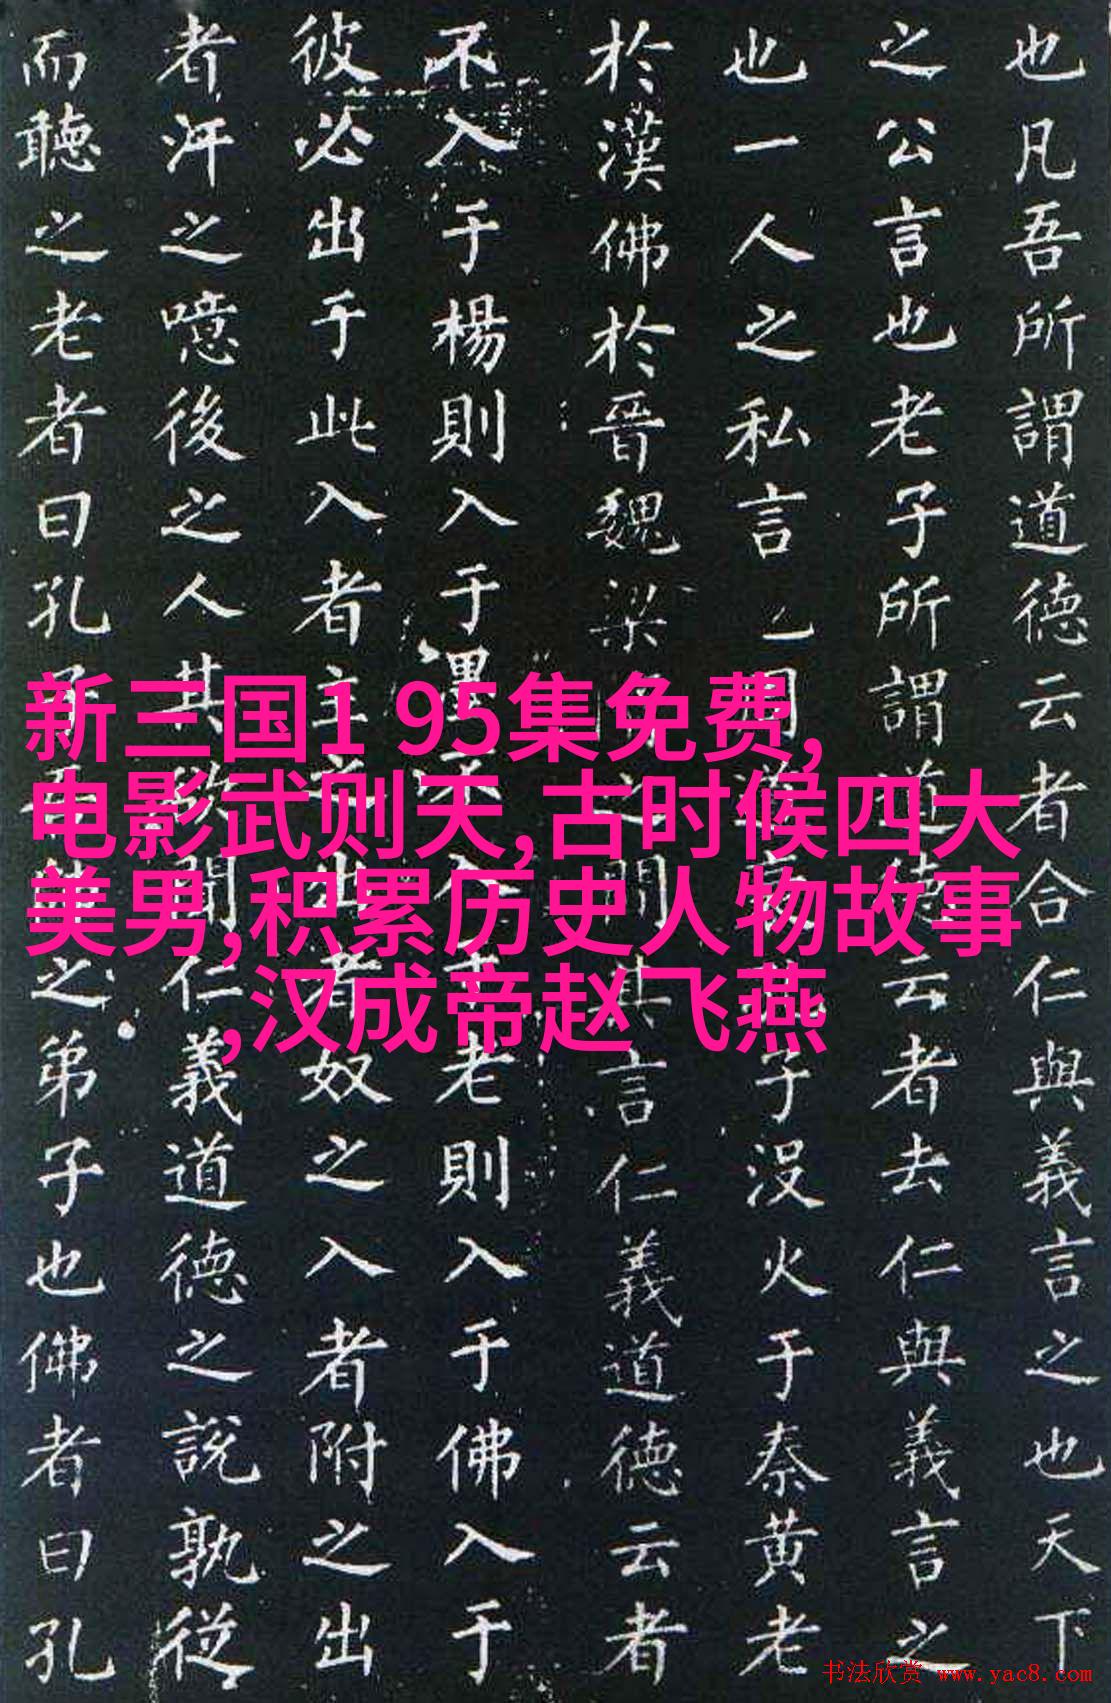 也凡吾所謂道德云者合仁與義言之也天下
之公言也老子所謂道德云者去仁與義言之
也一人之私言也周道衰子没火于秦黄老
於漢佛於晉魏梁之間其言仁義道德云者
不入于楊則入于墨不入于老則入于佛入于
彼必出于此入者主之出者奴之入者附之出
者汙之噫後之人其欲聞仁義道德之說孰從
而聽之老者曰孔子之弟子也佛者曰孔
新三国1 95集免费,
电影武则天,古时候四大
美男,积累历史人物故事
,汉成帝赵飞燕
书法欣赏 www.yac8.com